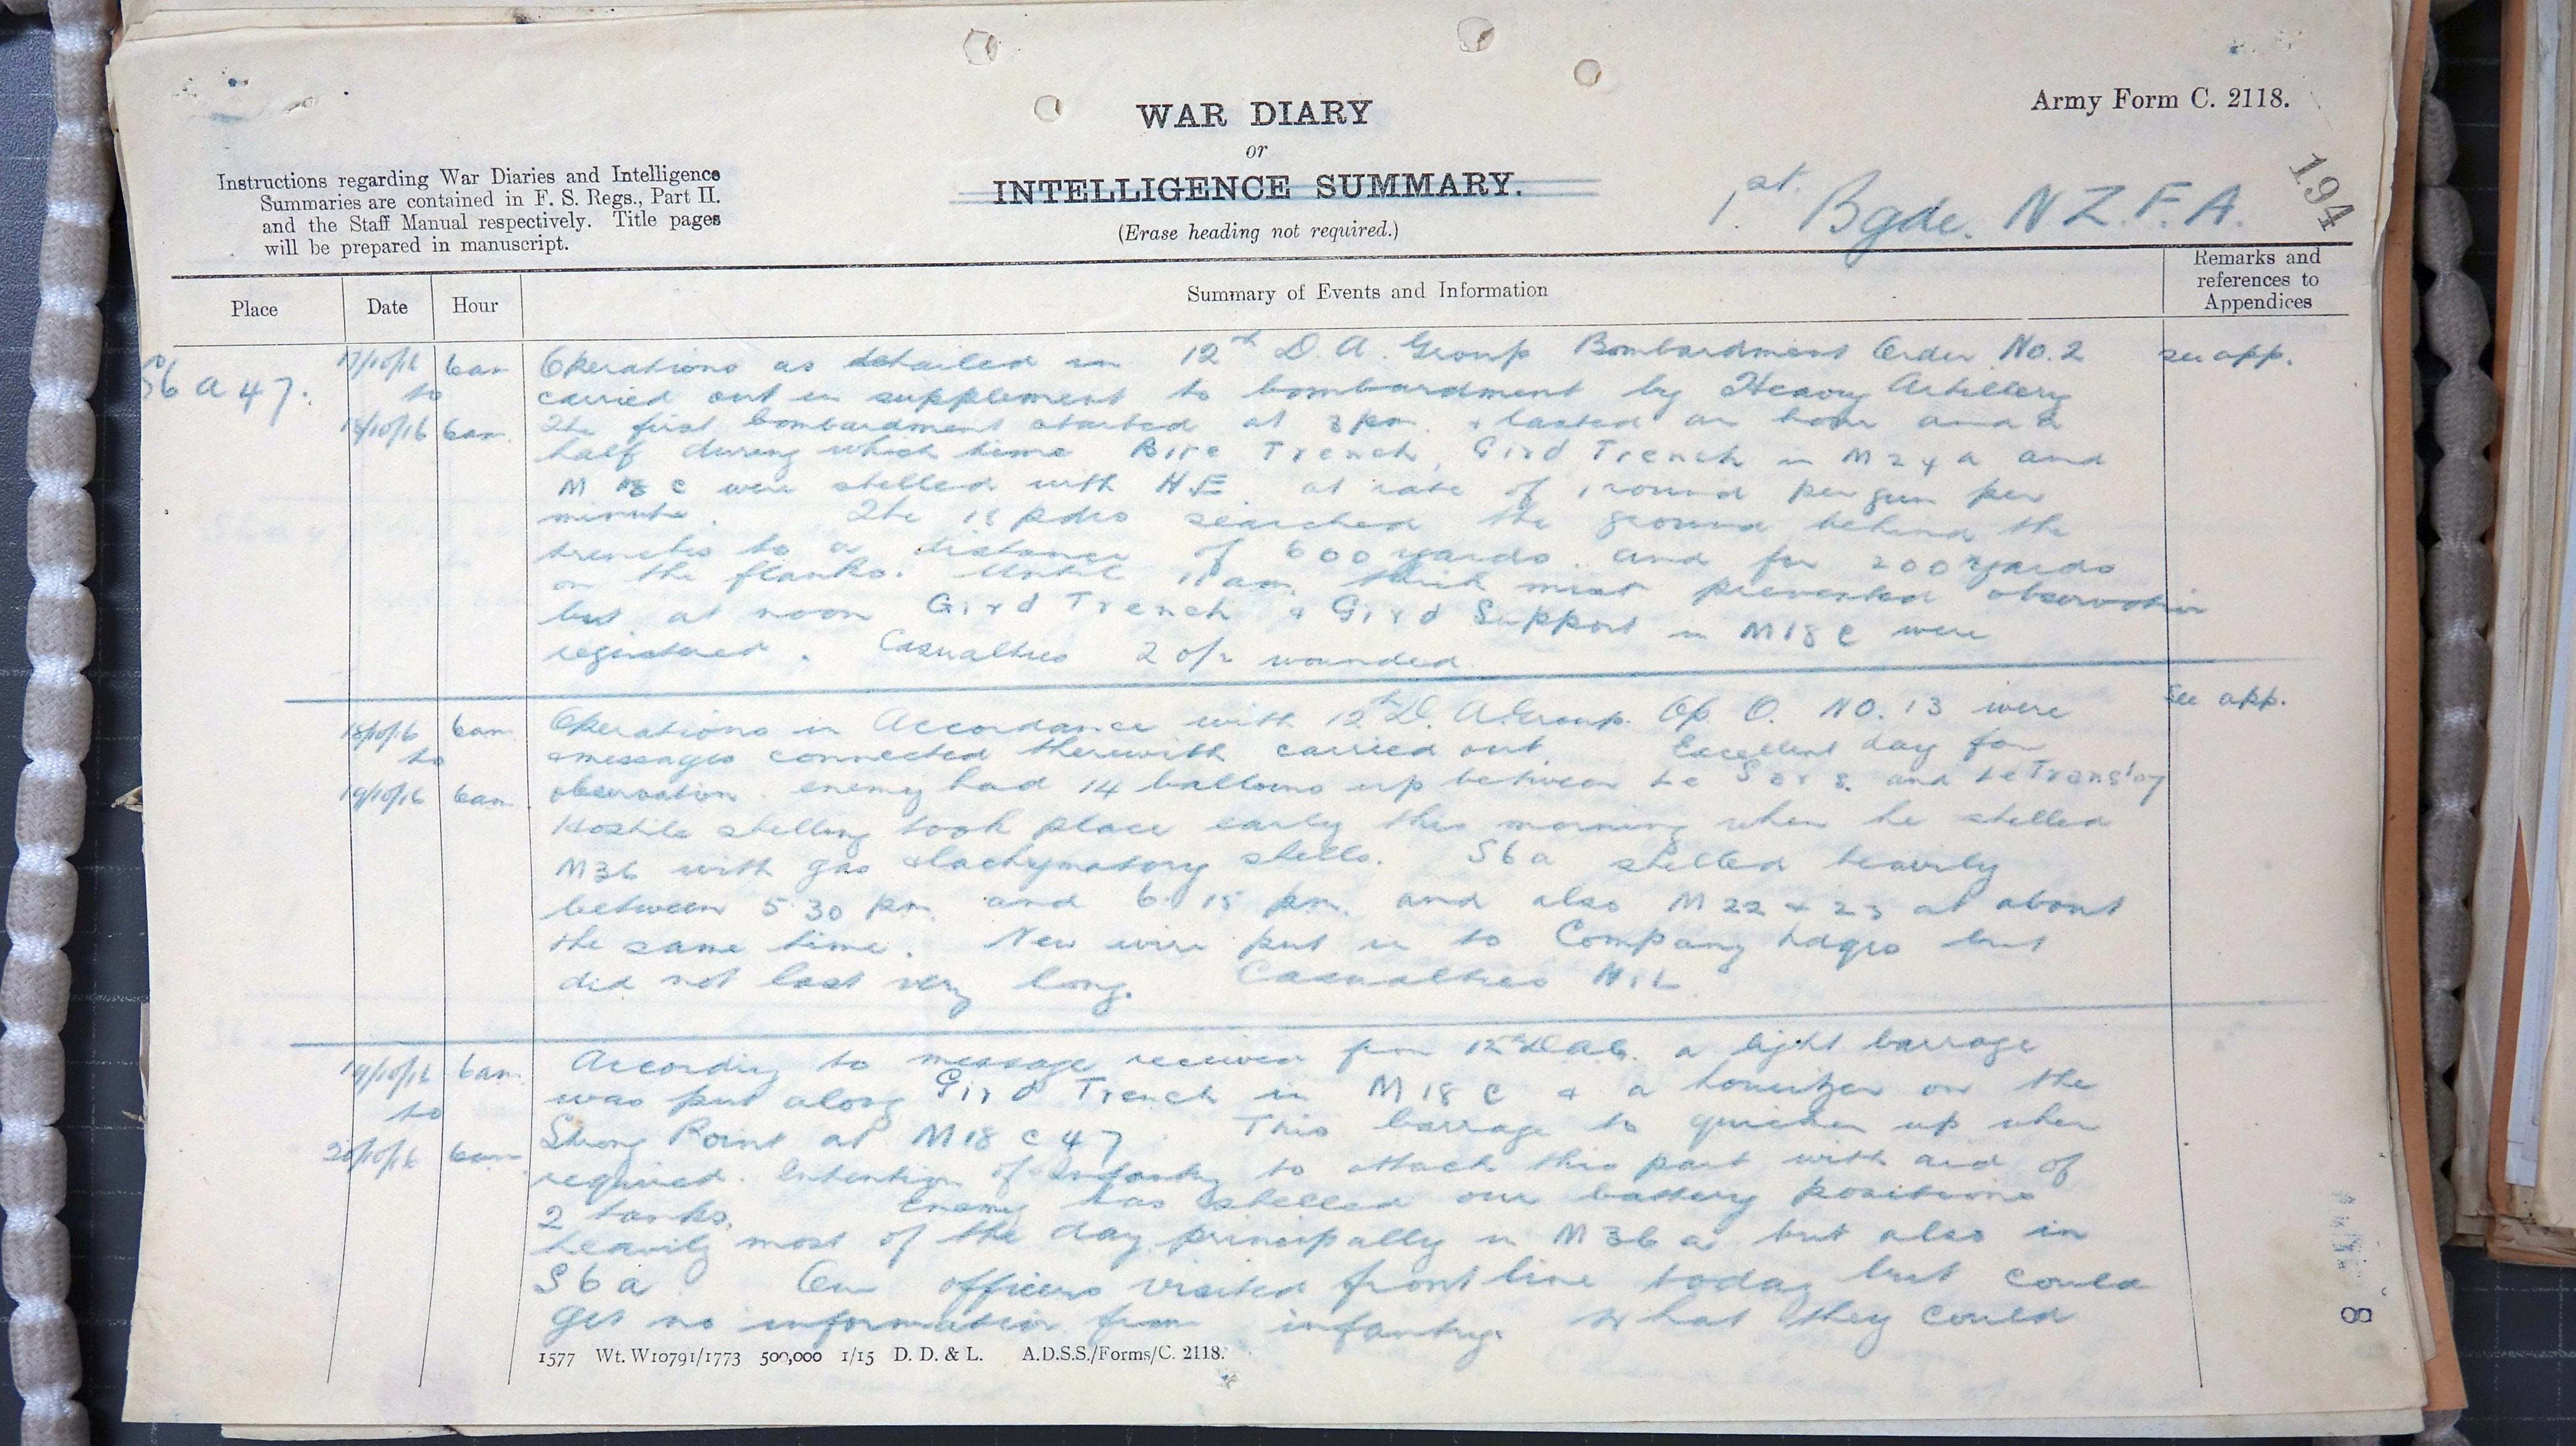 Army Form C. 2118.
WAR DIARY
or
INTELLIGENCE SUMMARY.
(Erase heading not required.)
Instructions regarding War Diaries and Intelligence
Summaries are contained in F. S. Regs., Part II.
and the Staff Manual respectively. Title pages
will be prepared in manuscript.
1st. Bgde. N Z. F. A.
194
Place Date Hour Summary of Events and Information Remarks and references to Appendices
S6 a 47. 17/10/16 6am Operations as detailed in 12th D. A. Group Bombardment Order No. 2 see app.
to carried out in supplement to bombardment by Heavy Artillery
18/10/16 6am. The first bombardment started at 3 pm. & lasted an hour and a
half during which time Bite Trench, Gird Trench in M 24 a and
M 18 c were shelled with H.E. at rate of 1 round per gun per
minute. The 18 pdrs searched the ground behind the
trenches to a distance of 600 yards and for 200 yards
on the flanks. Until 11 am. thick mist prevented observation
but at noon Gird Trench & Gird Support in M18 c were
registered. Casualties 2 o/r wounded
18/10/16 6am. Operations in Accordance with 12th D. A. Group. Op. O. NO. 13 were See app.
to &messages connected therewith carried out. Excellent day for
19/10/16 6am observation. enemy had 14 balloons up between Le Sars. and Le Transloy
Hostile shelling took place early this morning when he shelled
M36 with gas & lachymatory shells. S6a shelled heavily
between 5.30 pm. and 6.15 pm. and also M 22 & 23 at about
the same time. New wire put in to Company hdqrs but
did not last very long. Casualties NIL
19/10/16 6am. According to message received from 12th D.A.G. a light barrage
to was put along Gird Trench in M 18 c & a howitzer on the
Strong Point at M18 c 47. This barrage to quicken up when
20/10/16 6am required. Intention of Infantry to attack this part with aid of
2 tanks. Enemy has shelled our battery positions
heavily most of the day principally in M 36 a but also in
S6a. Our officers visited front line today but could
get no information from infantry. What they could
1577 Wt. W10791/1773 500,000 1/15 D. D. & L. A.D.S.S./Forms/C. 2118.
8